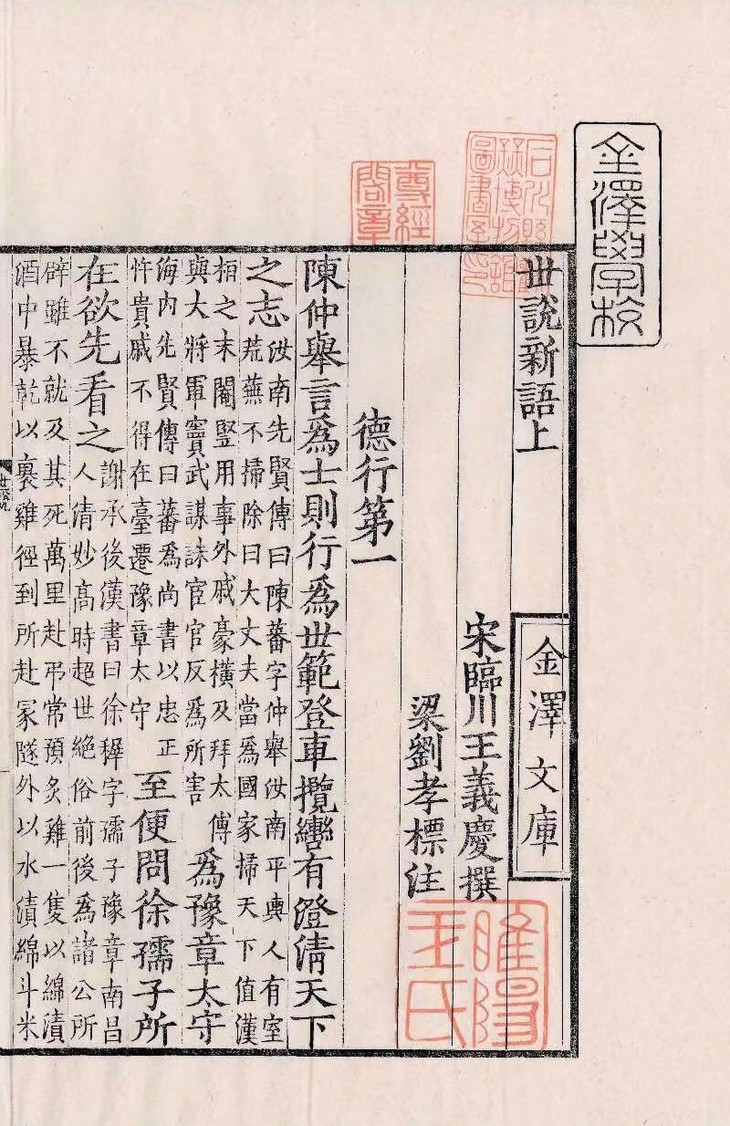 金澤學校
世說新語上
金澤文庫
宋臨川王義慶撰
梁劉孝標注
德行第一
陳仲舉言爲士則行爲世範登車攬轡有澄清天下
之志
汝南先賢傳曰陳蕃字仲舉汝南平輿人有室
荒蕪不掃除曰大丈夫當爲國家掃天下值漢
桓之末閹豎用事外戚豪橫及拜太傅
與大將軍竇武謀誅宦官反爲所害
爲豫章太守
海内先賢傳曰蕃爲尚書以忠正
忤貴戚不得在臺遷豫章太守
至便問徐孺子所
在欲先看之
謝承後漢書曰徐穉字孺子豫章南昌
人清妙高時超世絶俗前後爲諸公所
辟雖不就及其死萬里赴弔常預炙雞一隻以綿漬
酒中暴乾以裹雞徑到所赴冢隧外以水漬綿斗米
尊經
閣章
石川縣
圖書室印
睢陽
王氏